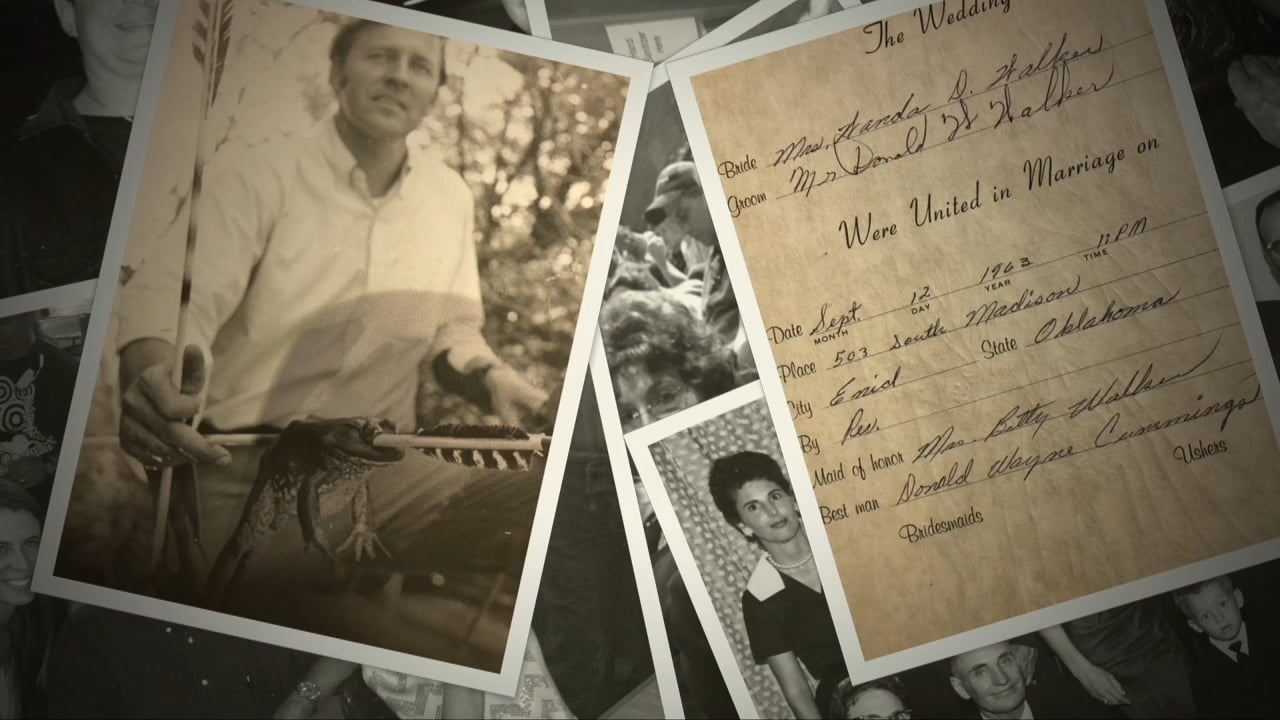 The Wedding
Bride Mrs. Wanda D. Walker
Groom Mr Donald W Walker
Were United in Marriage on
Date Sept. 12 1963 11 PM
MONTH DAY YEAR TIME
Place 503 South Madison
City Enid State Oklahoma
By Rev.
Maid of honor Mrs. Betty
Best man Donald Wayne Cummings
Bridesmaids Ushers